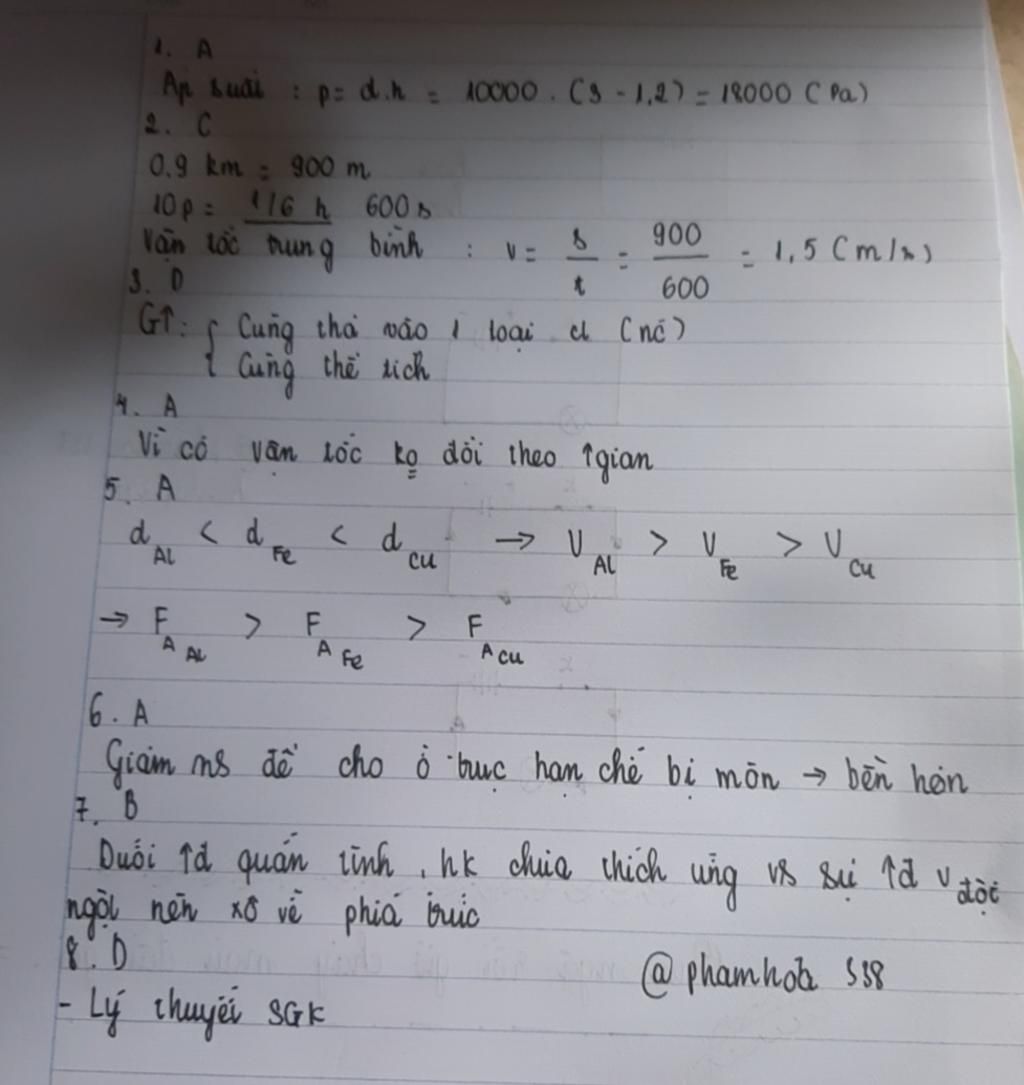 1. A
Áp suất : p = d.h = 10000 . (3 - 1,2) = 18000 (Pa)
2. C
0.9 km = 900 m
10p = 1/6 h 600s
Vận tốc trung bình : v = s/t = 900/600 = 1,5 (m/s)
3. D
GT: { Cùng thả vào 1 loại cl (nc)
Cùng thể tích
4. A
Vì có vận tốc ko đổi theo tgian
5. A
d Al < d Fe < d Cu → V Al > V Fe > V Cu
→ F A Al > F A Fe > F A Cu
6. A
Giảm ms để cho ổ trục hạn chế bị mòn → bền hơn
7. B
Dưới tđ quán tính , hk chưa thích ứng vs sự tđ v đột
ngột nên xô về phía trước
8. D
@phamhoa 338
- Lý thuyết SGK